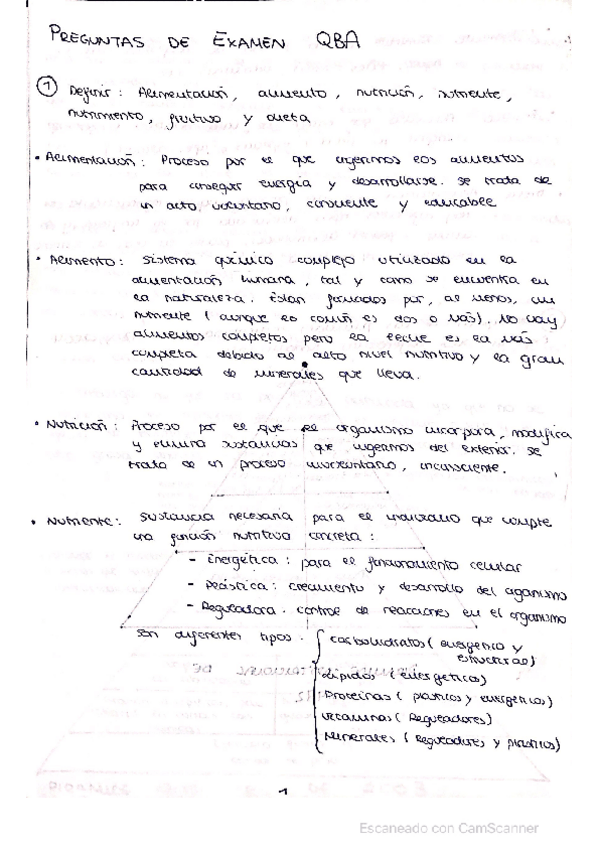 PREGUNTAS DE EXAMEN QBA
① Definir: Alimentación, alimento, nutrición, nutriente,
nutrimento, nutritivo y dieta
• Alimentación: Proceso por el que ingerimos los alimentos
para conseguir energía y desarrollarse. Se trata de
un acto voluntario, consciente y educable
• Alimento: Sistema químico complejo utilizado en la
alimentación humana, tal y como se encuentra en
la naturaleza. Están formados por, al menos, un
nutriente (aunque lo común es dos o más). No hay
alimentos completos pero la leche es la más
completa debido al alto nivel nutritivo y la gran
cantidad de minerales que lleva.
• Nutrición: Proceso por el que el organismo incorpora, modifica
y elimina sustancias que ingerimos del exterior. Se
trata de un proceso involuntario, inconsciente.
• Nutriente: Sustancia necesaria para el individuo que cumple
una función nutritiva concreta:
- Energética: para el funcionamiento celular
- Plástica: crecimiento y desarrollo del organismo
- Reguladora. control de reacciones en el organismo
Son diferentes tipos. carbohidratos (energético y
estructural)
Lípidos (energéticos)
Proteínas (plásticos y energéticos)
Vitaminas (Reguladores)
Minerales (Reguladores y plásticos)
1
Escaneado con CamScanner